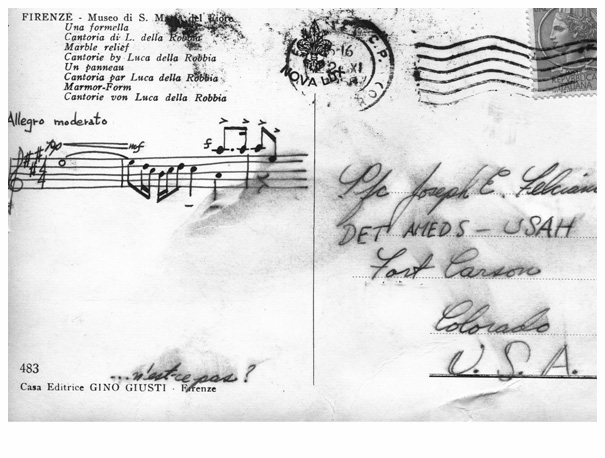 FIRENZE - Museo di S. M del Fiore
Una formella
Cantoria di L. della Robbia
Marble relief
Cantorie by Luca della Robbia
Un panneau
Cantoria par Luca della Robbia
Marmor-Form
Cantorie von Luca della Robbia
Allegro moderato
mf
f
Pfc Joseph E.
DET AMEDS - USAH
Fort Carson
Colorado
U.S.A.
483
...n'est-ce pas?
Casa Editrice GINO GIUSTI - Firenze